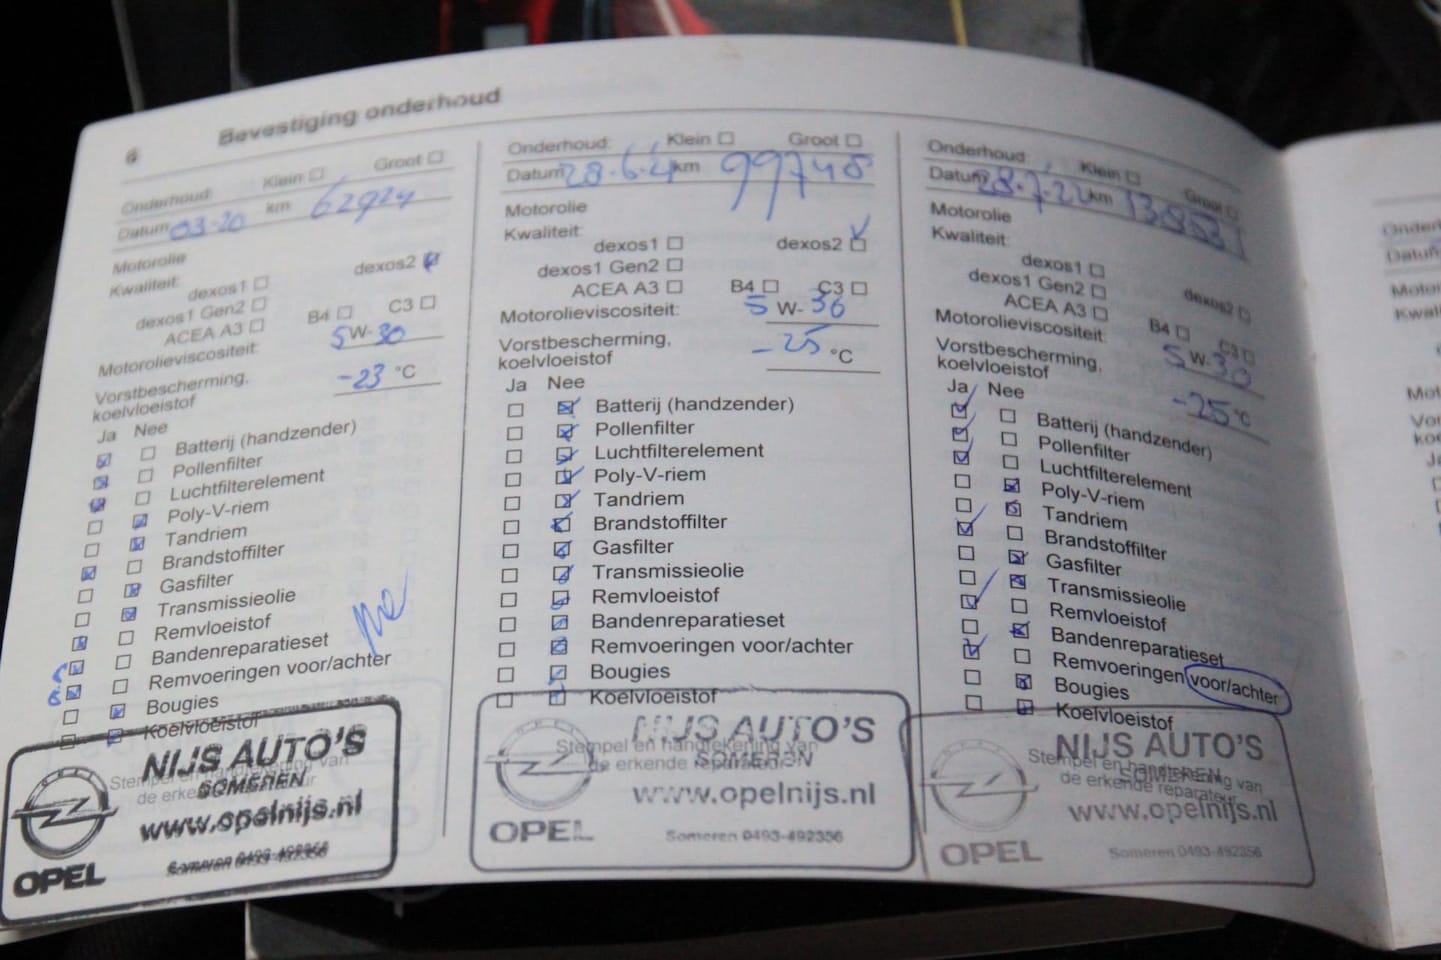 6 Bevestiging onderhoud
Onderhoud: Klein Groot
Datum 03-20 km 62924
Motorolie
Kwaliteit:
dexos1 dexos2
dexos1 Gen2
ACEA A3 B4 C3
Motorolieviscositeit: 5 W- 30
Vorstbescherming,
koelvloeistof -23 °C
Ja Nee
Batterij (handzender)
Pollenfilter
Luchtfilterelement
Poly-V-riem
Tandriem
Brandstoffilter
Gasfilter
Transmissieolie
Remvloeistof
Bandenreparatieset
Remvoeringen voor/achter
Bougies
Koelvloeistof
Stempel en handtekening van
de erkende reparateur
NIJS AUTO'S
SOMEREN
www.opelnijs.nl
OPEL Someren 0493-492356
Onderhoud: Klein Groot
Datum 28.6.21 km 99748
Motorolie
Kwaliteit:
dexos1 dexos2
dexos1 Gen2
ACEA A3 B4 C3
Motorolieviscositeit: 5 W- 30
Vorstbescherming,
koelvloeistof -25 °C
Ja Nee
Batterij (handzender)
Pollenfilter
Luchtfilterelement
Poly-V-riem
Tandriem
Brandstoffilter
Gasfilter
Transmissieolie
Remvloeistof
Bandenreparatieset
Remvoeringen voor/achter
Bougies
Koelvloeistof
Stempel en handtekening van
de erkende reparateur
NIJS AUTO'S
SOMEREN
www.opelnijs.nl
OPEL Someren 0493-492356
Onderhoud: Klein Groot
Datum 28.7.22 km
Motorolie
Kwaliteit:
dexos1 dexos2
dexos1 Gen2
ACEA A3 B4 C3
Motorolieviscositeit: 5 W- 30
Vorstbescherming,
koelvloeistof -25 °C
Ja Nee
Batterij (handzender)
Pollenfilter
Luchtfilterelement
Poly-V-riem
Tandriem
Brandstoffilter
Gasfilter
Transmissieolie
Remvloeistof
Bandenreparatieset
Remvoeringen voor/achter
Bougies
Koelvloeistof
Stempel en handtekening van
de erkende reparateur
NIJS AUTO'S
SOMEREN
www.opelnijs.nl
OPEL Someren 0493-492356